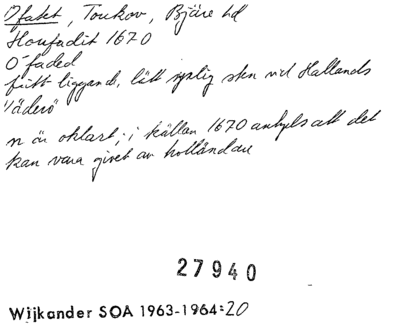 Ofaket, Torekov, Bjäre hd
Houfadit 1670
O faded
fritt liggande, lätt synlig sten vid Hallands
Väderö
n är oklart; i källan 1670 antyds att det
kan vara givet av holländare
27940
Wijkander SOA 1963-1964:20